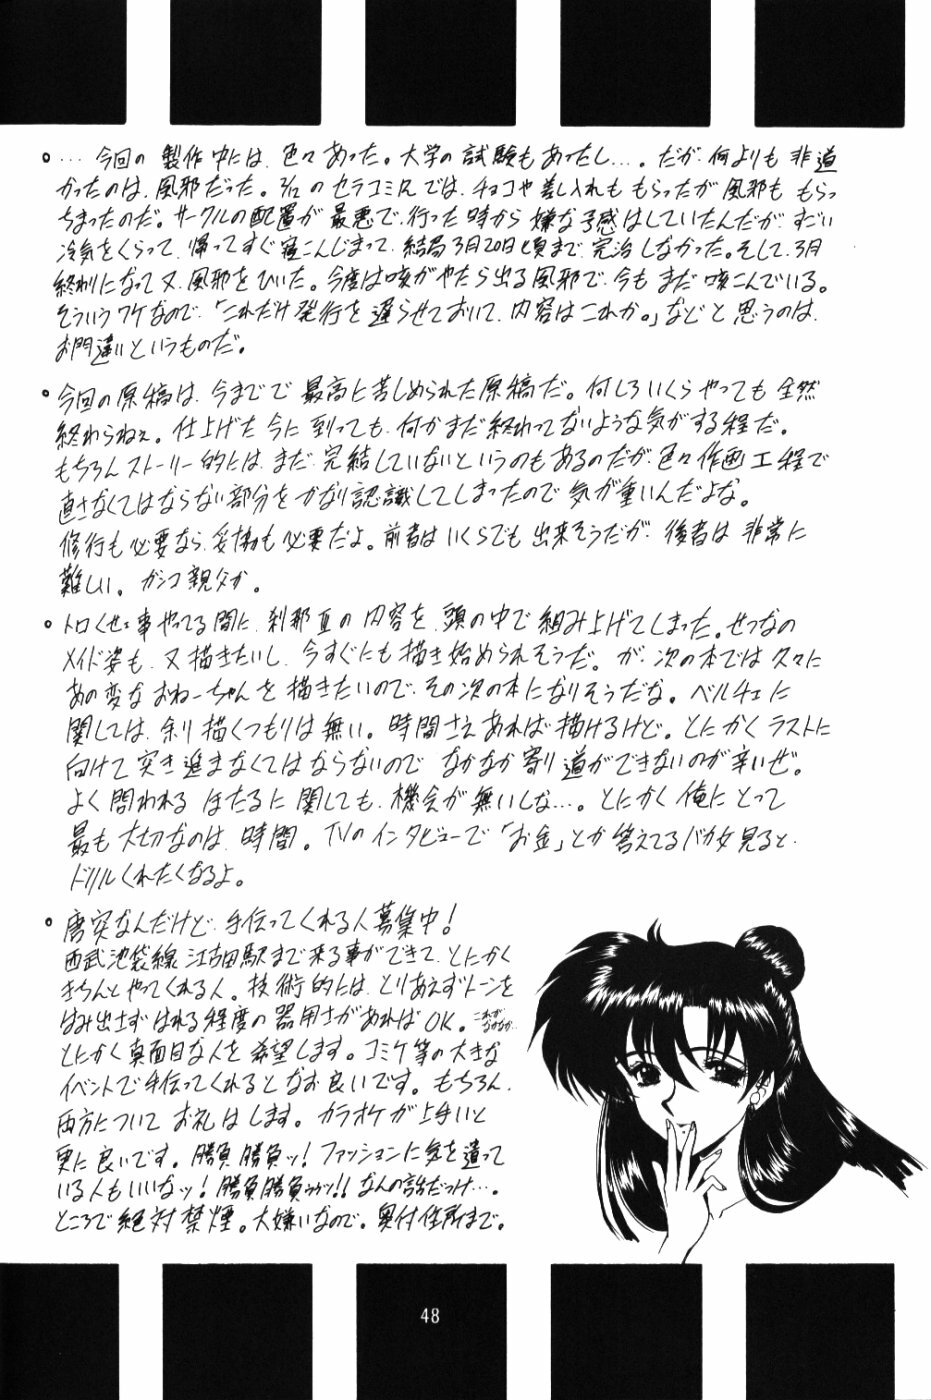 ・…今回の製作中には、色々あった。大学の試験もあったし…。だが、何よりも非道
かったのは、風邪だった。3/12のセラコミRでは、チョコや差し入れももらったが風邪ももらっ
ちまったのだ。サークルの配置が最悪で、行った時から嫌な予感はしていたんだが、すごい
冷気をくらって、帰ってすぐ寝こんじまって、結局3月20日頃まで完治しなかった。そして、3月
終わりになって又、風邪をひいた。今度は咳がやたら出る風邪で、今もまだ咳こんでいる。
そういうワケなので、「これだけ発行を遅らせておいて、内容はこれか。」などと思うのは、
お門違いというものだ。
・今回の原稿は、今までで最高に苦しめられた原稿だ。何しろいくらやっても全然
終わらねぇ。仕上げた今に到っても、何かまだ終わってないような気がする程だ。
もちろんストーリー的には、まだ完結していないというのもあるのだが、色々作画工程で
直さなくてはならない部分をかなり認識してしまったので気が重いんだよな。
修行も必要なら、妥協も必要だよ。前者はいくらでも出来そうだが、後者は非常に
難しい。ガンコ親父か。
・トロくせェ事やってる間に、刹那Ⅱの内容を、頭の中で組み上げてしまった。せつなの
メイド姿も、又描きたいし、今すぐにも描き始められそうだ。が、次の本では久々に
あの変なおねーちゃんを描きたいので、その次の本になりそうだな。ベルチェに
関しては、余り描くつもりは無い。時間さえあれば描けるけど。とにかくラストに
向けて突き進まなくてはならないのでなかなか寄り道ができないのが辛いぜ。
よく問われるほたるに関しても、機会が無いしな…。とにかく俺にとって
最も大切なのは、時間。TVのインタビューで「お金」とか答えてるバカ女見ると、
ドリルくれたくなるよ。
・唐突なんだけど、手伝ってくれる人募集中！
西武池袋線江古田駅まで来る事ができて、とにかく
きちんとやってくれる人。技術的には、とりあえずトーンを
はみ出さずはれる程度の器用さがあればOK。これがなかなか…
とにかく真面目な人を希望します。コミケ等の大きな
イベントで手伝ってくれるとなお良いです。もちろん、
両方についてお礼はします。カラオケが上手いと
更に良いです。勝負勝負ッ！ファッションに気を遣って
いる人もいいなッ！勝負勝負ゥゥッ!!なんの話だっけ…。
ところで絶対禁煙。大嫌いなので。奥付住所まで。
48